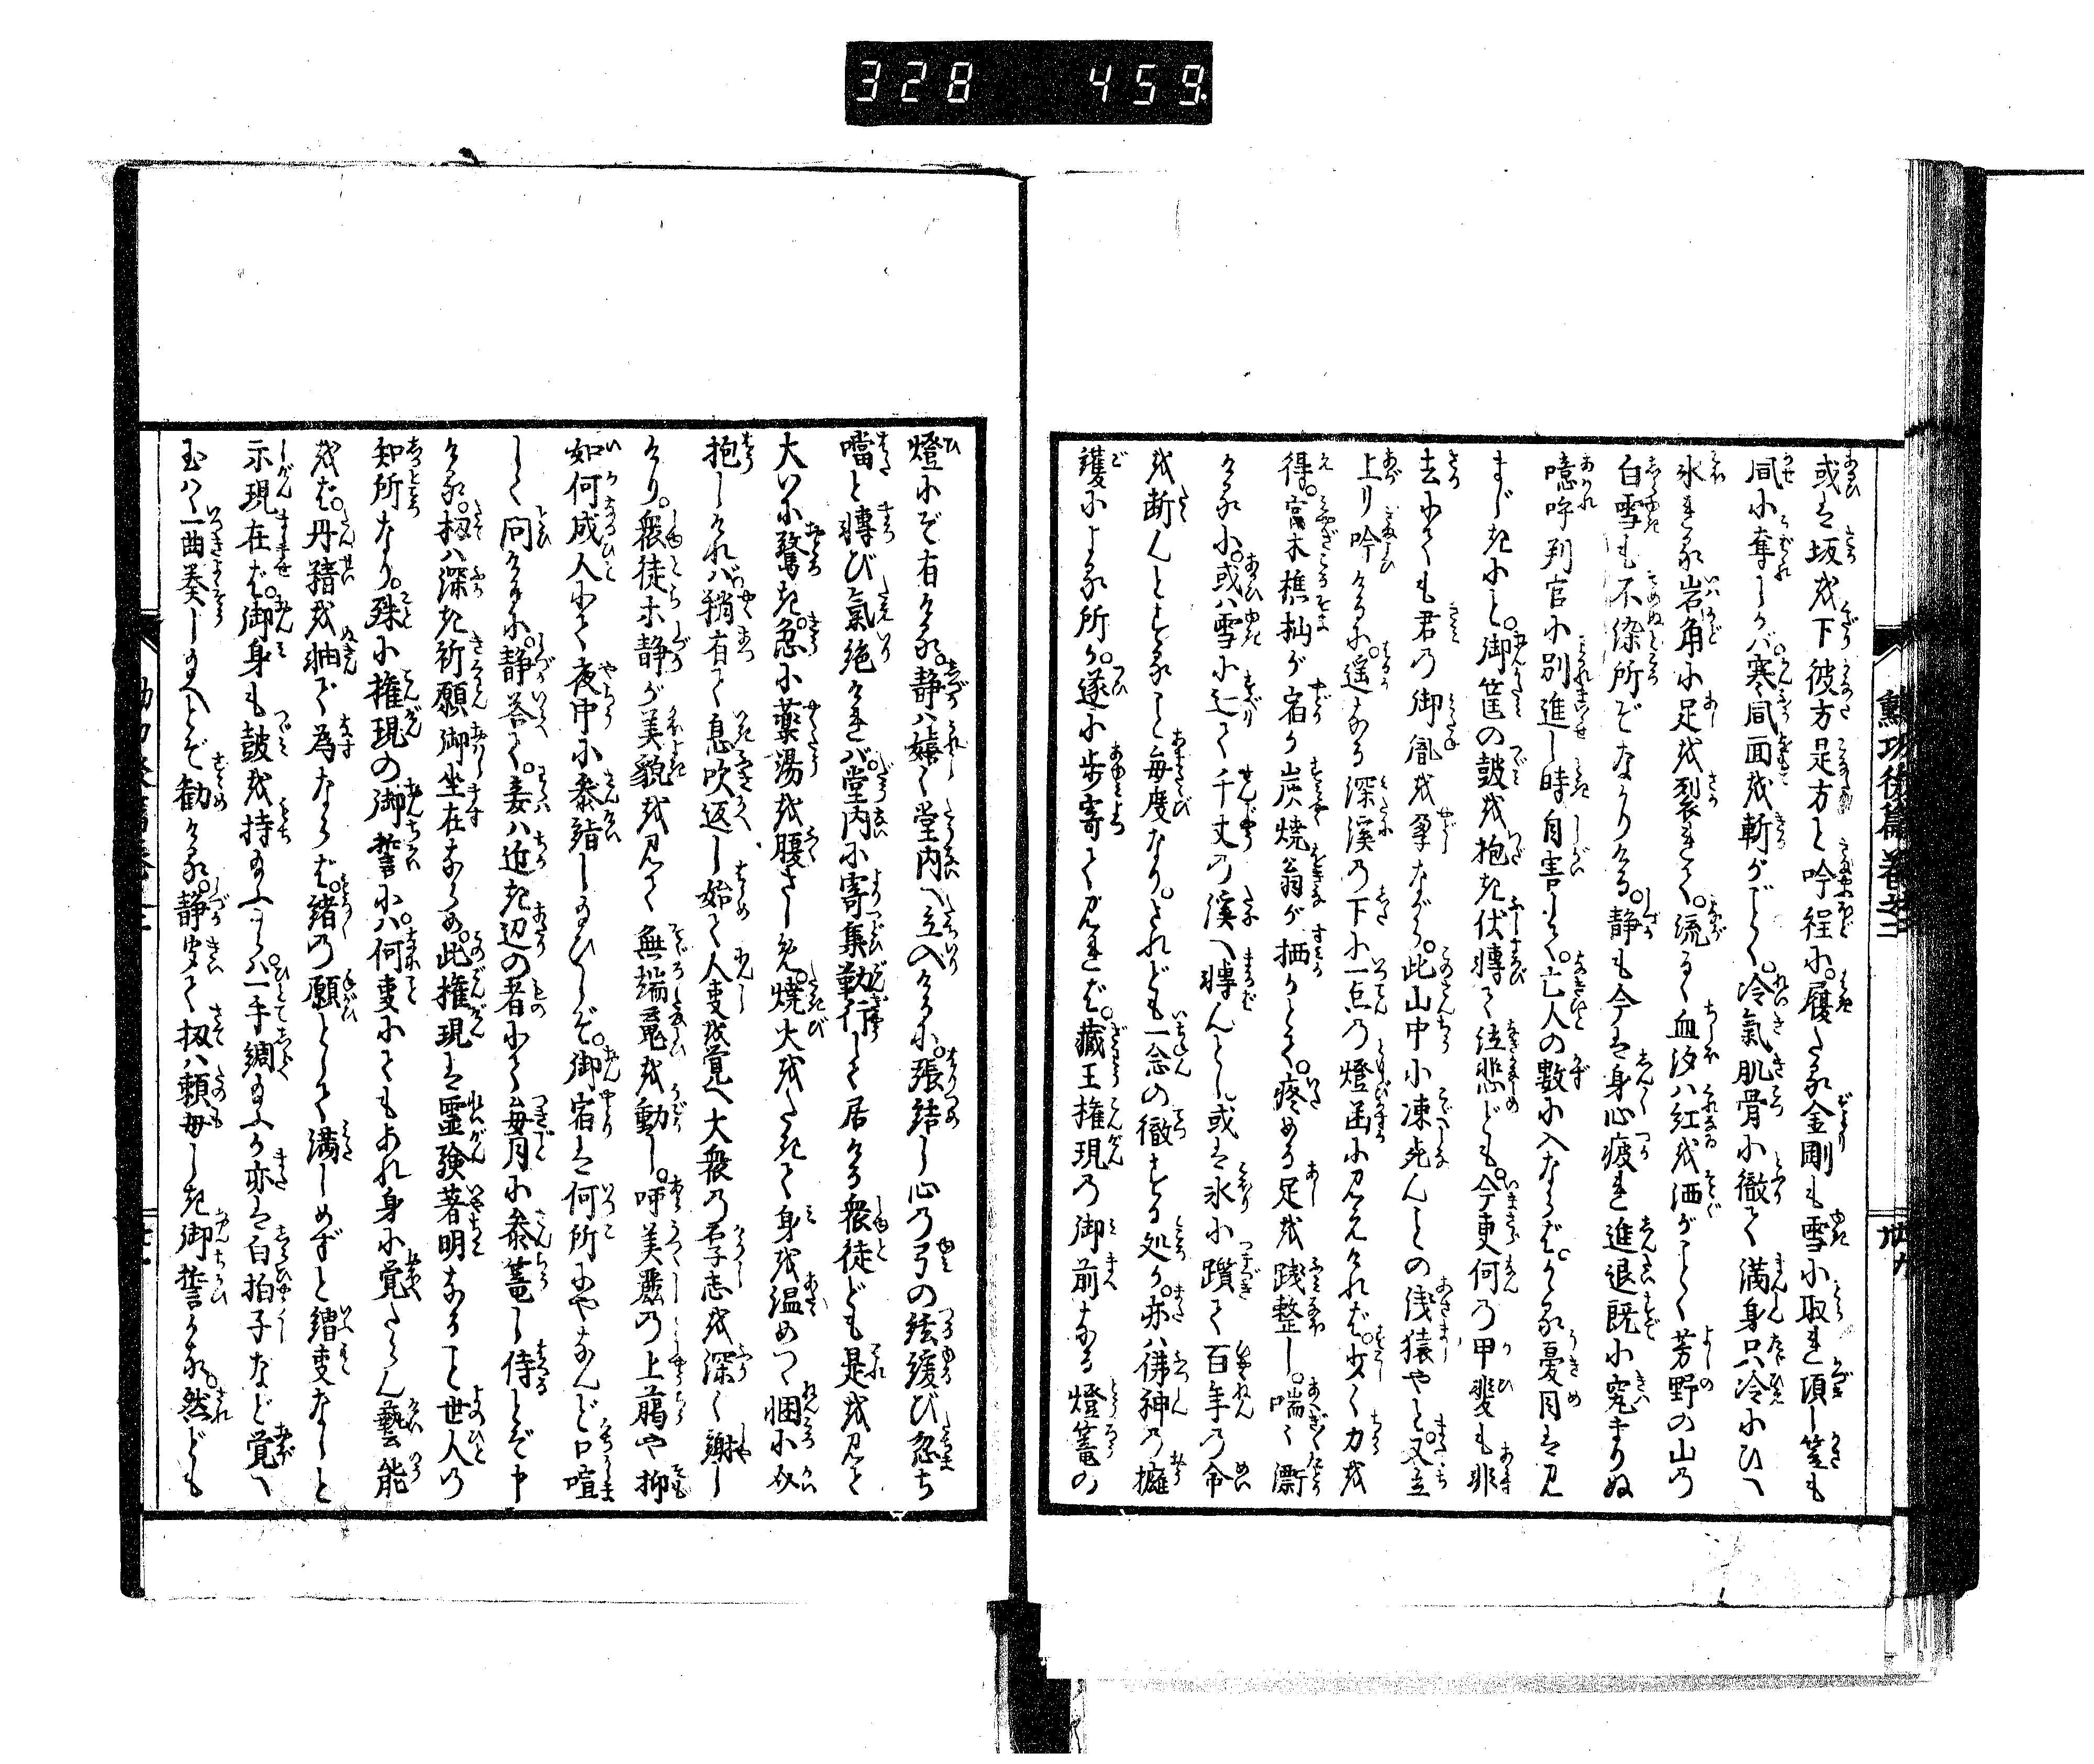 328 459
勲功後篇巻之三
或は坂を下彼方是方と吟程に。履たる金剛も雪に取れ頂し笠も
風に奪しかバ寒風面を斬がごとく。冷氣肌骨に徹て満身只冷にひへ
氷れる岩角に足を裂れて。流るゝ血汐ハ紅を洒がごとく芳野の山の
白雪も不染所ぞなかりける。静も今は身心疲れ進退既に究りぬ
噫吽判官に別進し時自害して。亡人の數に入ならば。かゝる憂目は見
まじきにと。御筐の鼓を抱き伏轉て泣悲ども。今更何の甲斐も非
去にても君の御胤を孕ながら。此山中に凍死んとの浅猿やと。又立
上り吟けるに。遥なる深溪の下に一点の燈函に見えけれバ。少く力を
得。宮木樵杣が宿か炭焼翁が栖かとて。疼める足を踐整し。喘々漂
ける に。或ハ雪に辷て千丈の溪へ轉んとし或は氷に躓て百年の命
を断んとする こと毎度なり。されども一念の徹する処か。亦ハ佛神の擁
護によ る所か。遂に歩寄て見れば。藏王権現の御前なる燈篭の
燈にぞ有ける。静ハ嬉く堂内へ立入けるに。張結し心の弓の絃緩び忽ち
噹と轉び氣絶けれバ。堂内に寄集勤行して居ける衆徒ども是を見て
大いに驚き。急に薬湯を腹さしめ。焼火をたきて身を温めつゝ悃に介
抱しけれバ稍有て息吹返し始て人事を覚へ大衆の志を深く謝し
けり。衆徒ホ静が美貌を見て無端意を動し。呼美麗の上﨟や抑
如何成人にて夜中に参詣し玉ひしぞ。御宿は何所にやなんど口喧
しく問けるに。静答て。妾ハ近き辺の者にて毎月に参篭し侍とぞ申
ける。扨ハ深き祈願御坐在ならめ。此権現は霊験著明なること世人の
知所なり。殊に権現の御誓にハ。何事にてもあれ身に覚たらん藝能
をば。丹精を抽で為ならば。諸の願として満しめずと謂事なしと
示現在ば。御身も鼓を持玉ふからハ。一手調玉ふか亦は白拍子など覚へ
玉ハゝ一曲奏し玉へとぞ勧ける。静聞て扨ハ頼母しき御誓かな。然ども